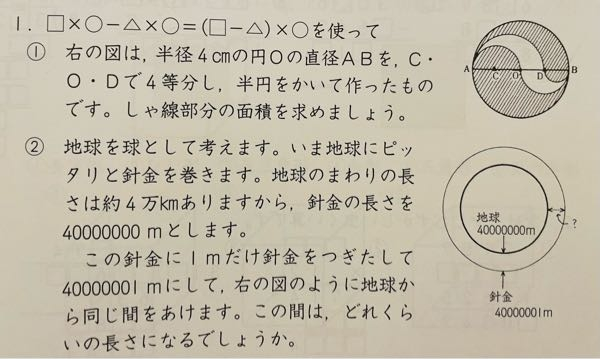 1. □×○−△×○=(□−△)×○を使って
① 右の図は，半径4cmの円Oの直径ABを，C・
O・Dで4等分し，半円をかいて作ったもの
です。しゃ線部分の面積を求めましょう。
A
C
O
D
B
② 地球を球として考えます。いま地球にピッ
タリと針金を巻きます。地球のまわりの長
さは約4万kmありますから，針金の長さを
40000000mとします。
この針金に1mだけ針金をつぎたして
40000001mにして，右の図のように地球か
ら同じ間をあけます。この間は，どれくら
いの長さになるでしょうか。
地球
40000000m
?
針金
40000001m